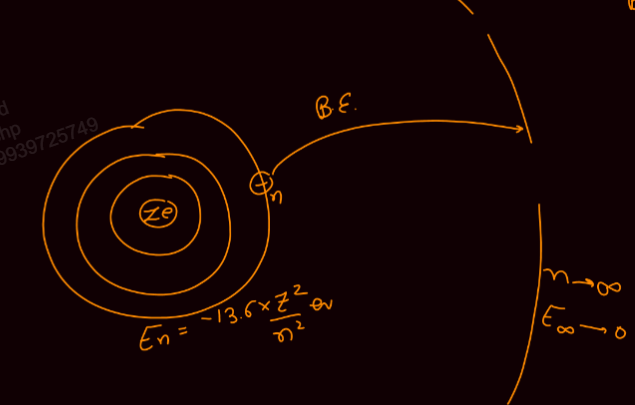 B.E.
d
hp
9939725749
Ze
- n
En = -13.6 × Z²/n² ev
n → ∞
E∞ → 0